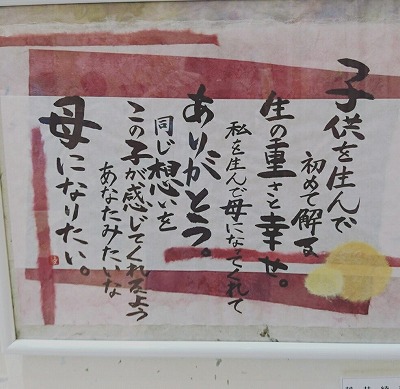 子供を生んで
初めて解る
生の重さと幸せ。
私を生んで母になってくれて
ありがとう。
同じ想いを
この子が感じてくれるよう
あなたみたいな
母になりたい。